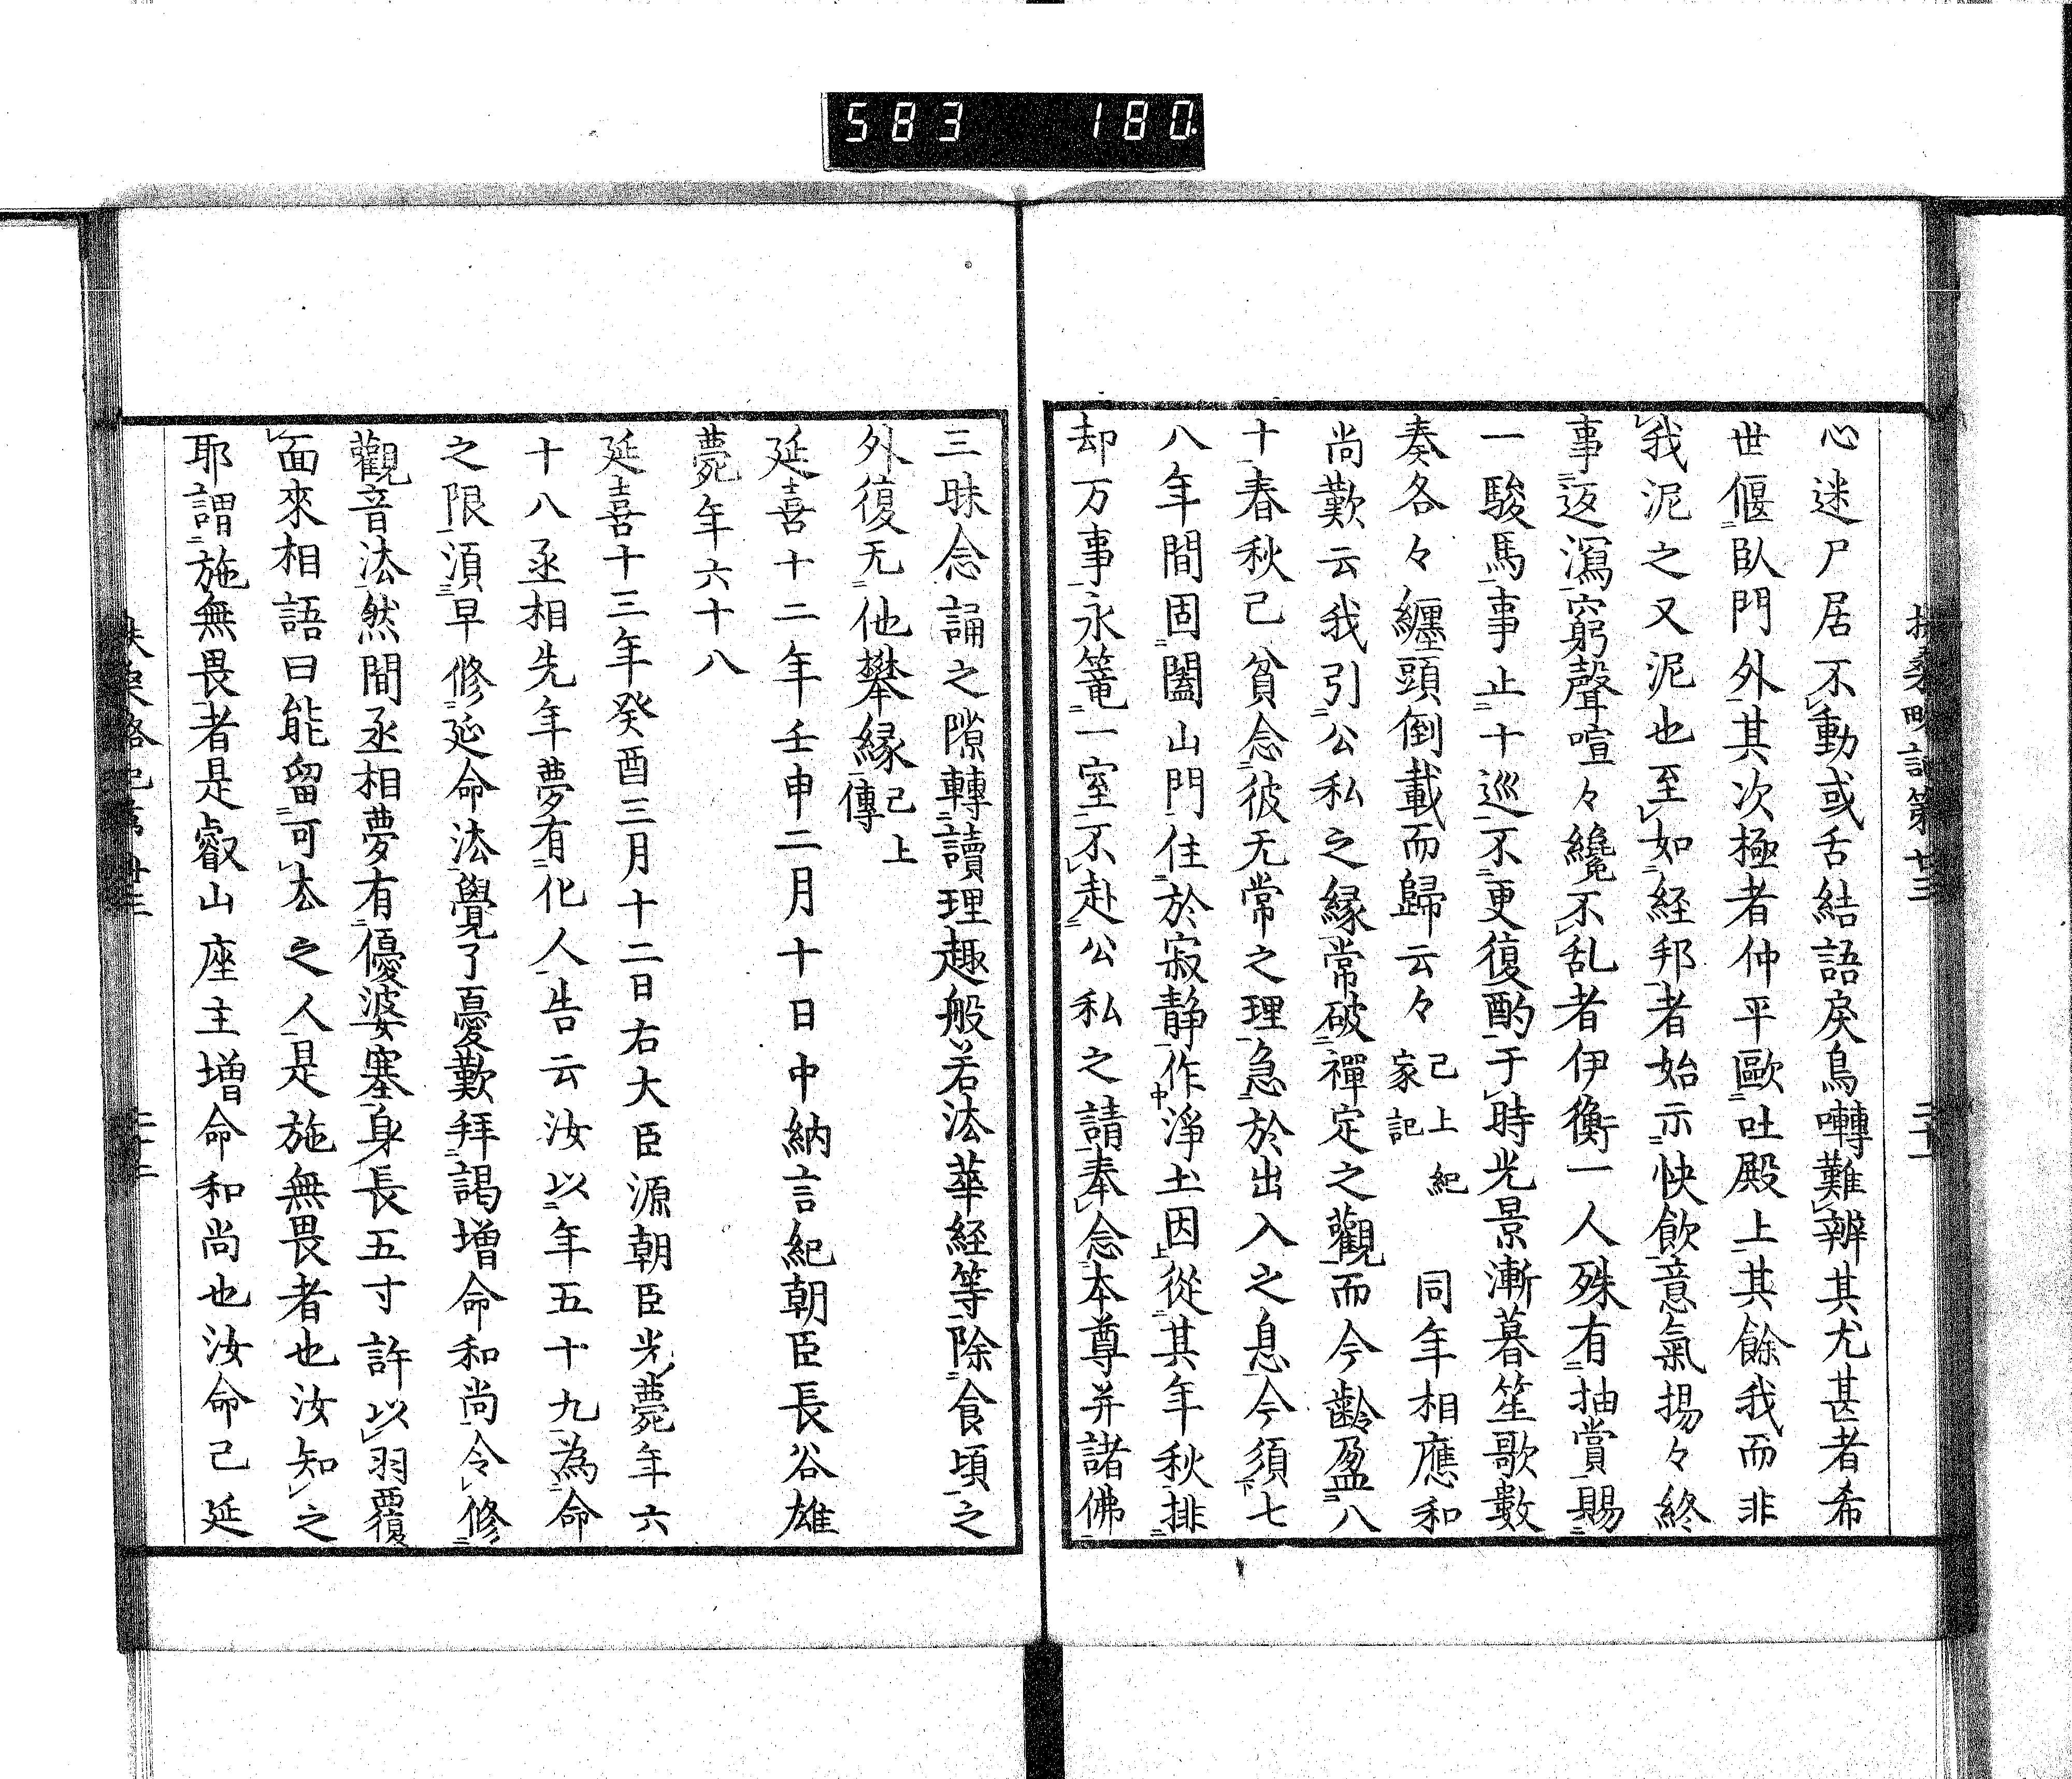 583 180
扶桑略記第廿三 二十一
心迷尸居不動或舌結語戾鳥囀難辨其尤甚者希
世偃臥門外其次極者仲平歐吐殿上其餘我而非
我泥之又泥也至如経邦者始示快飲意氣揚々終
事返瀉窮聲喧々纔不乱者伊衡一人殊有抽賞賜
一駿馬事止十巡不更復酌于時光景漸暮笙歌數
奏各々纒頭倒載而歸云々 已上紀家記 同年相應和
尚歎云我引公私之縁常破禪定之觀而今齢盈八
十春秋已貧念彼无常之理急於出入之息今須七
八年間固闔山門住於寂静作淨土因從其年秋排
却万事永篭一室不赴公私之請奉念本尊并諸佛
三昧念誦之隙轉讀理趣般若法華経等除食頃之
外復无他攀縁 已上傳
延喜十二年壬申二月十日中納言紀朝臣長谷雄
薨年六十八
延喜十三年癸酉三月十二日右大臣源朝臣光薨年六
十八丞相先年夢有化人告云汝以年五十九為命
之限湏早修延命法覺了憂歎拜謁増命和尚令修
觀音法然間丞相夢有優婆塞身長五寸許以羽覆
面來相語曰能留可去之人是施無畏者也汝知之
耶謂施無畏者是叡山座主増命和尚也汝命已延